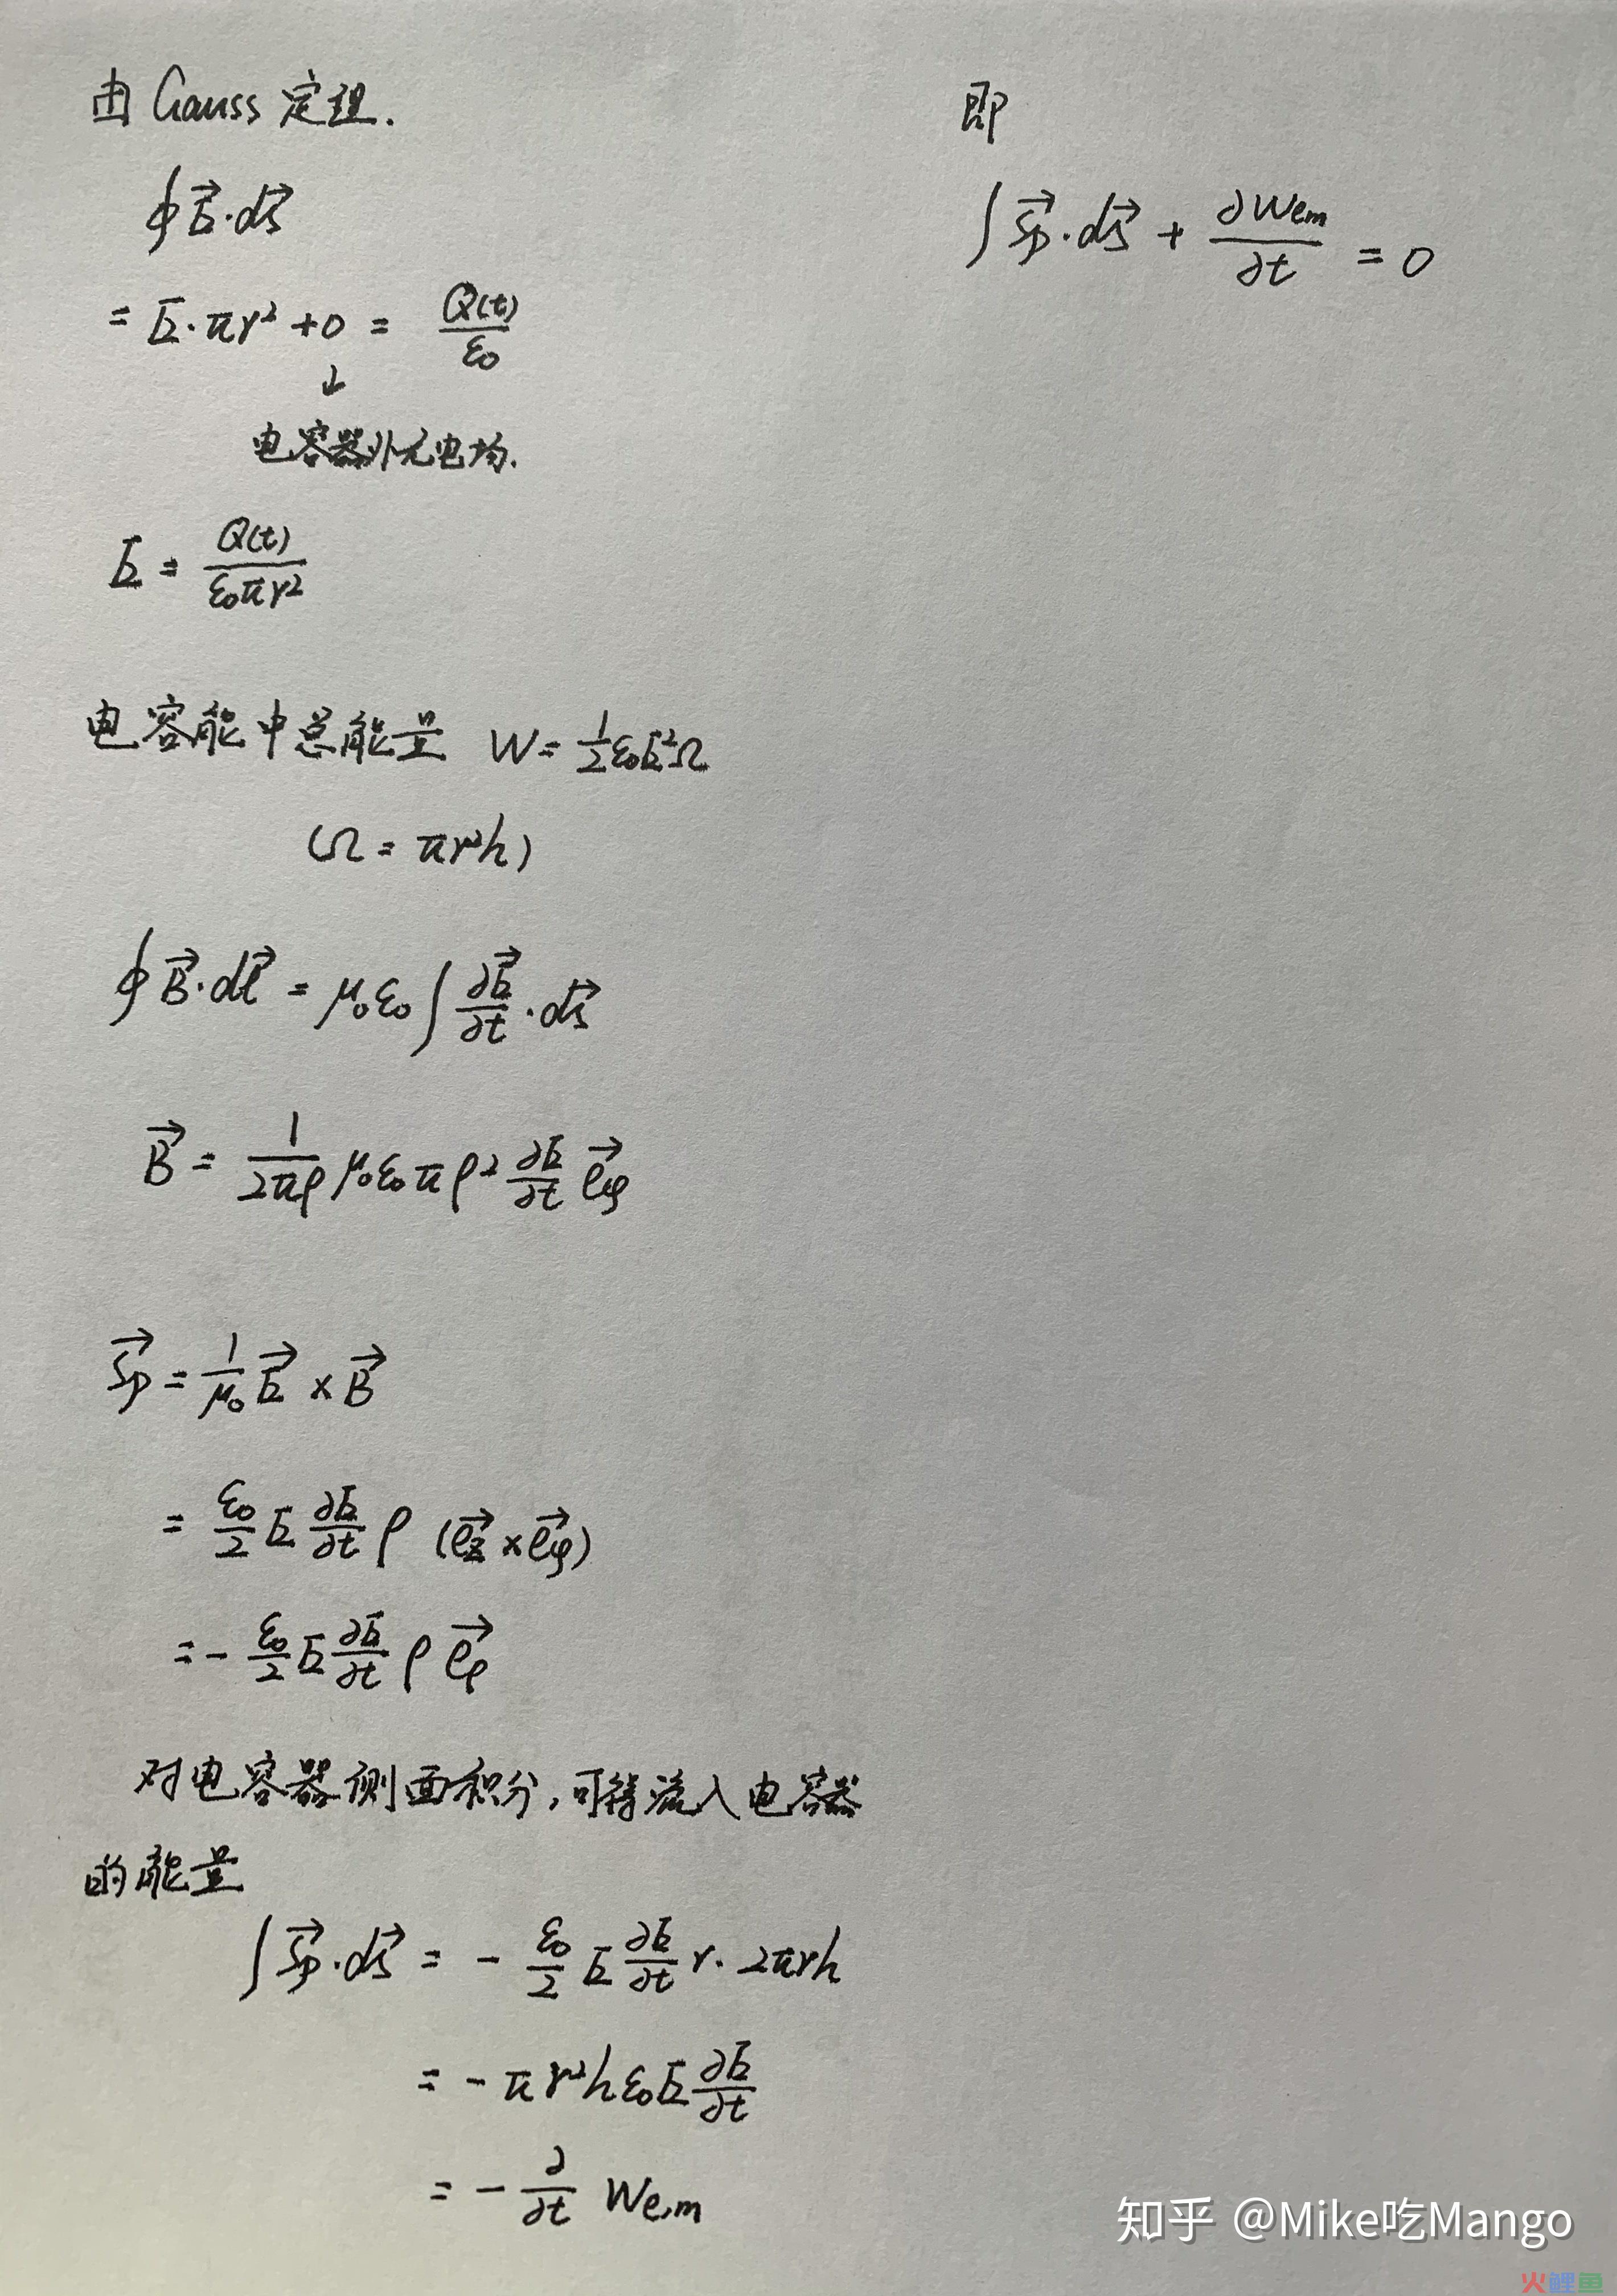 由 Gauss 定理.
∮E⃗·dS⃗
= E·πr² + 0 = Q(t)/ε₀
↓
电容器外无电场.
E = Q(t)/(ε₀πr²)
电容能中总能量 W = ½ε₀E²Ω
(Ω = πr²h)
∮B⃗·dl⃗ = μ₀ε₀∫∂E⃗/∂t·dS⃗
B⃗ = 1/(2πρ) μ₀ε₀πρ² ∂E/∂t e⃗φ
S⃗p = 1/μ₀ E⃗ × B⃗
= ε₀/2 E ∂E/∂t ρ (e⃗z × e⃗φ)
= - ε₀/2 E ∂E/∂t ρ e⃗ρ
对电容器侧面积分,可得流入电容器
的能量
∫S⃗p·dS⃗ = - ε₀/2 E ∂E/∂t r·2πrh
= - πr²hε₀E ∂E/∂t
= - ∂/∂t We,m
即
∫S⃗p·dS⃗ + ∂Wem/∂t = 0
知乎 @Mike吃Mango
火鲤鱼